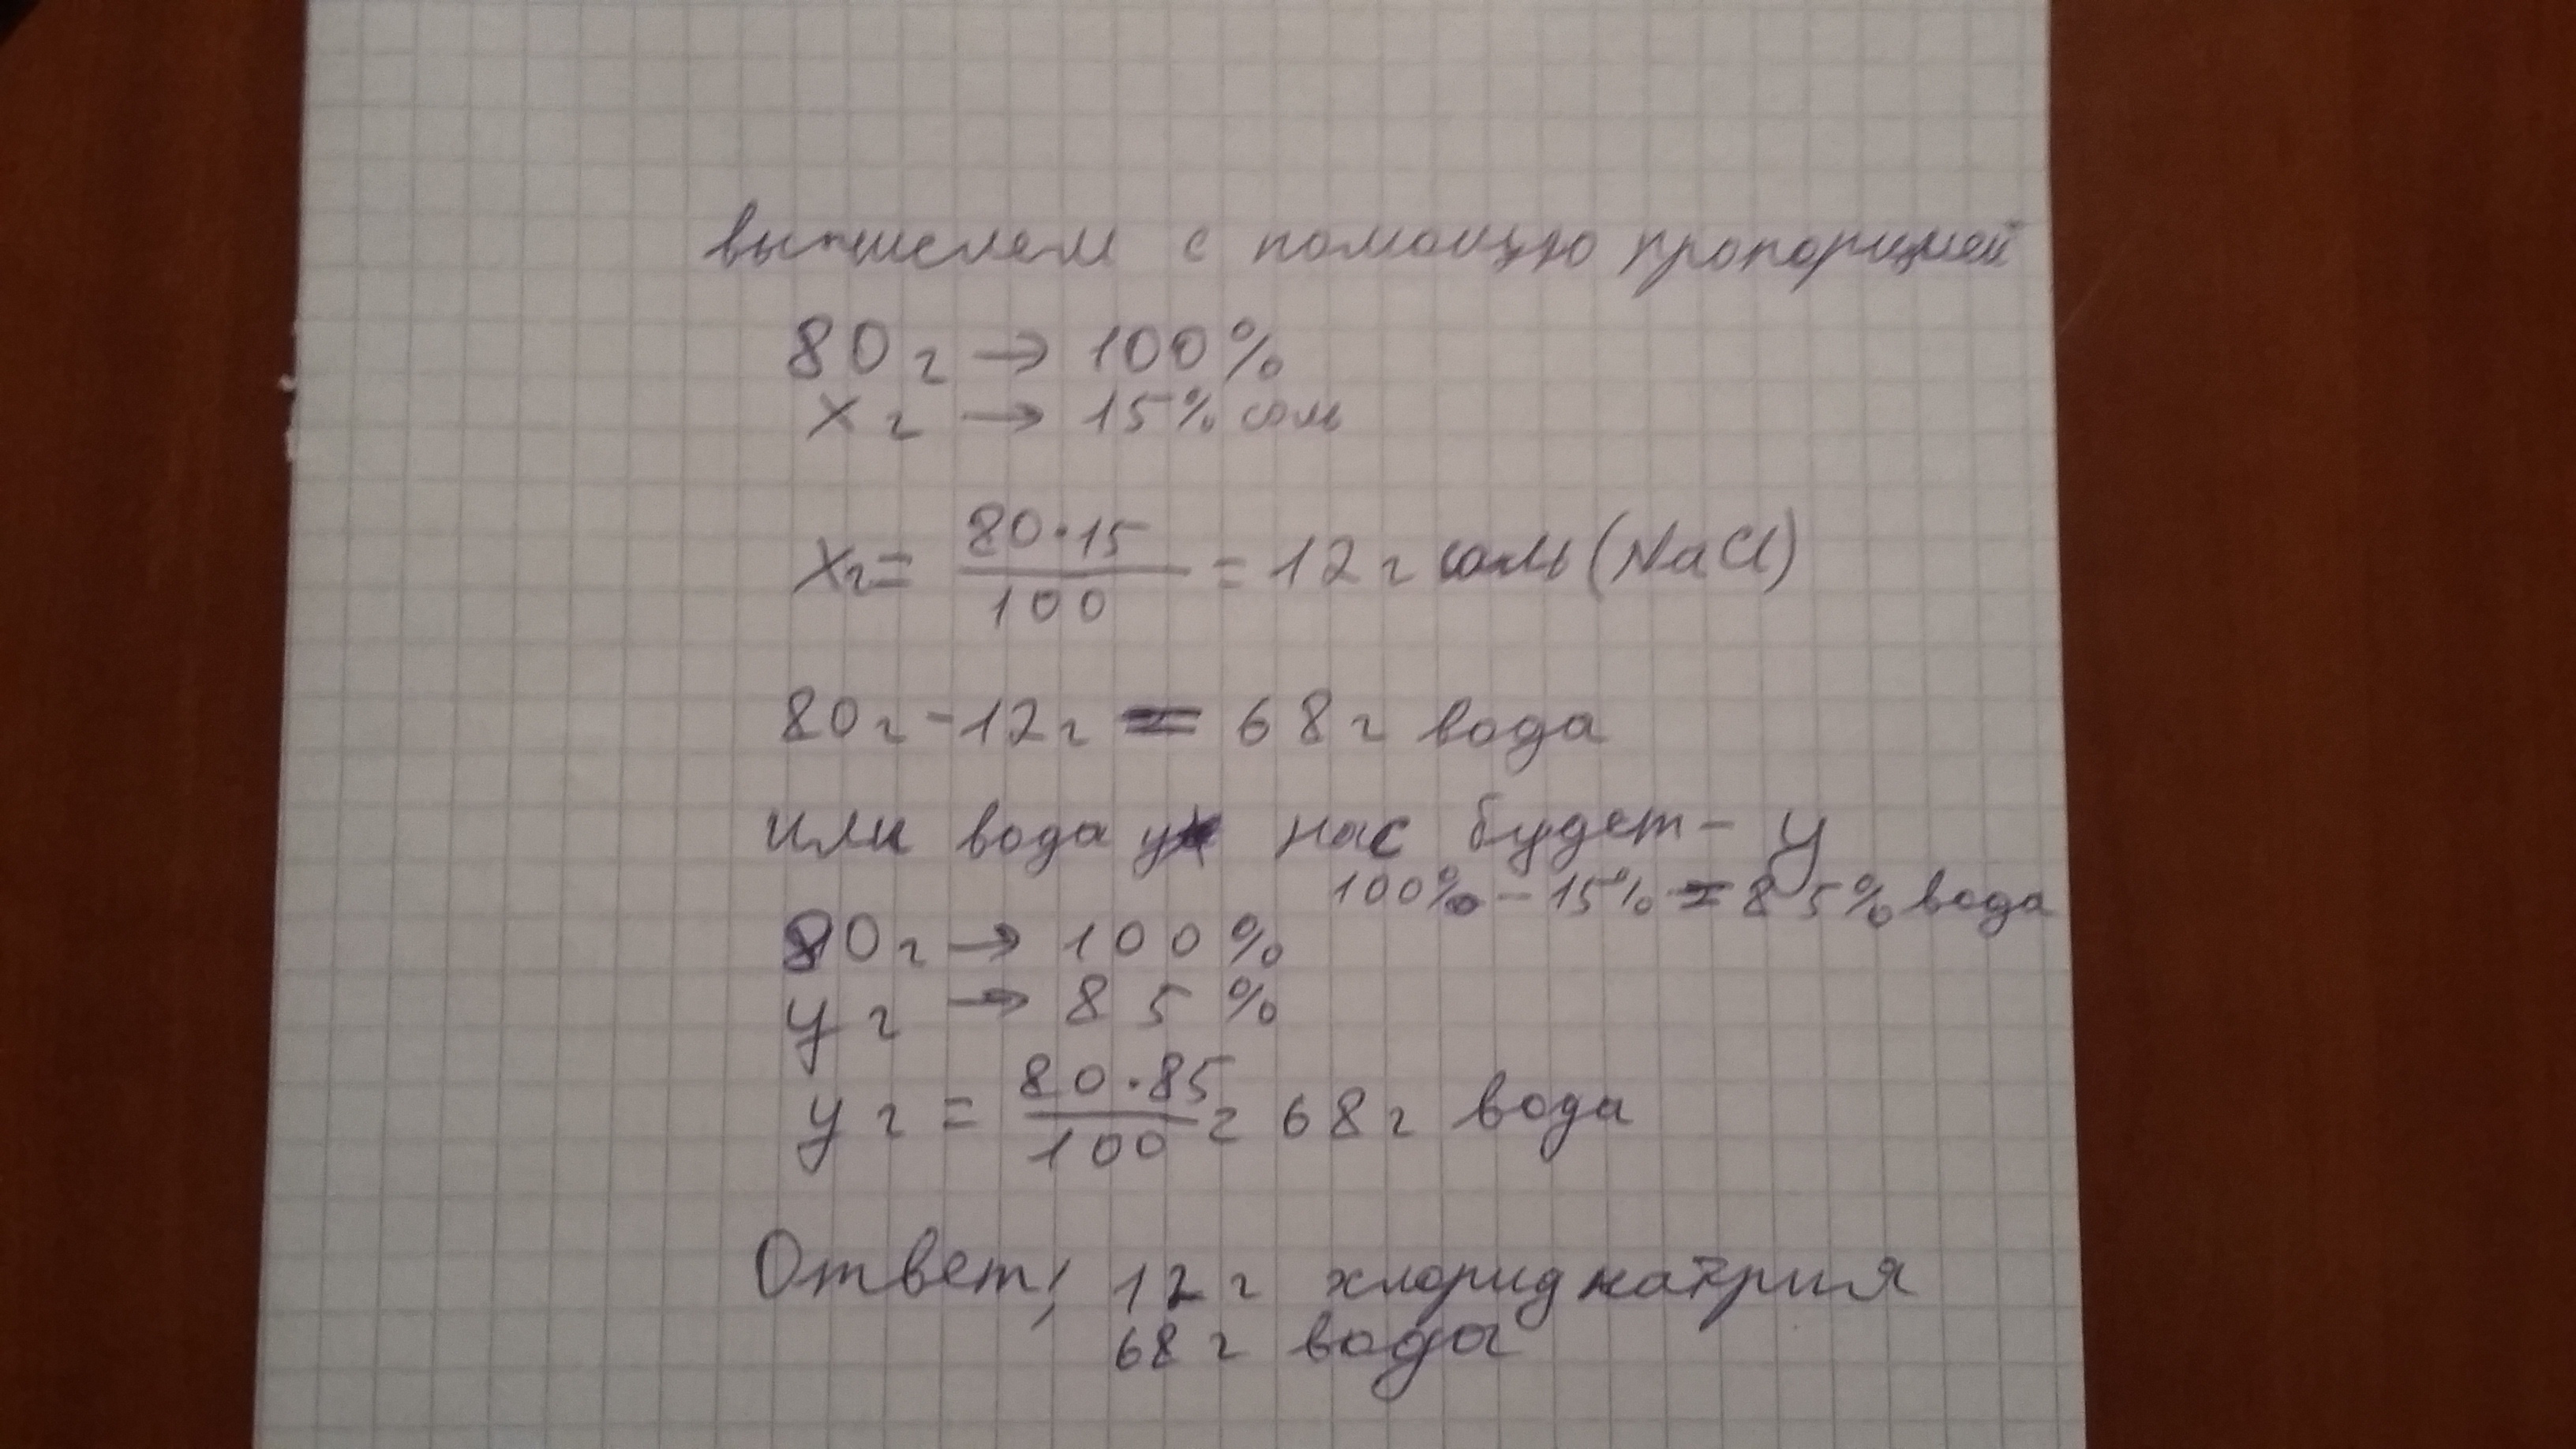 вычислем с помощю пропорцией
80 г → 100%
x г → 15% соль
x г = 80·15 / 100 = 12 г соль (NaCl)
80 г - 12 г = 68 г вода
или вода у нас будет - y
100% - 15% = 85% вода
80 г → 100%
y г → 85%
y г = 80·85 / 100 = 68 г вода
Ответ; 12 г хлорид натрия
68 г вода